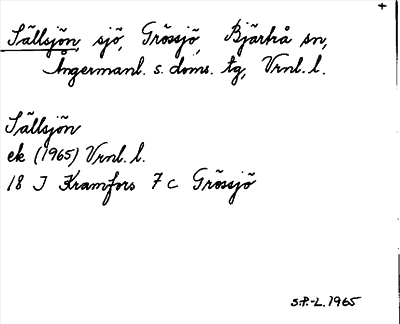 +
Sällsjön, sjö, Grössjö, Bjärtrå sn,
Ångermanl. s. doms. tg, Vrnl. l.
Sällsjön
ek (1965) Vrnl. l.
18 J Kramfors 7 c Grössjö
S.P.-L. 1965